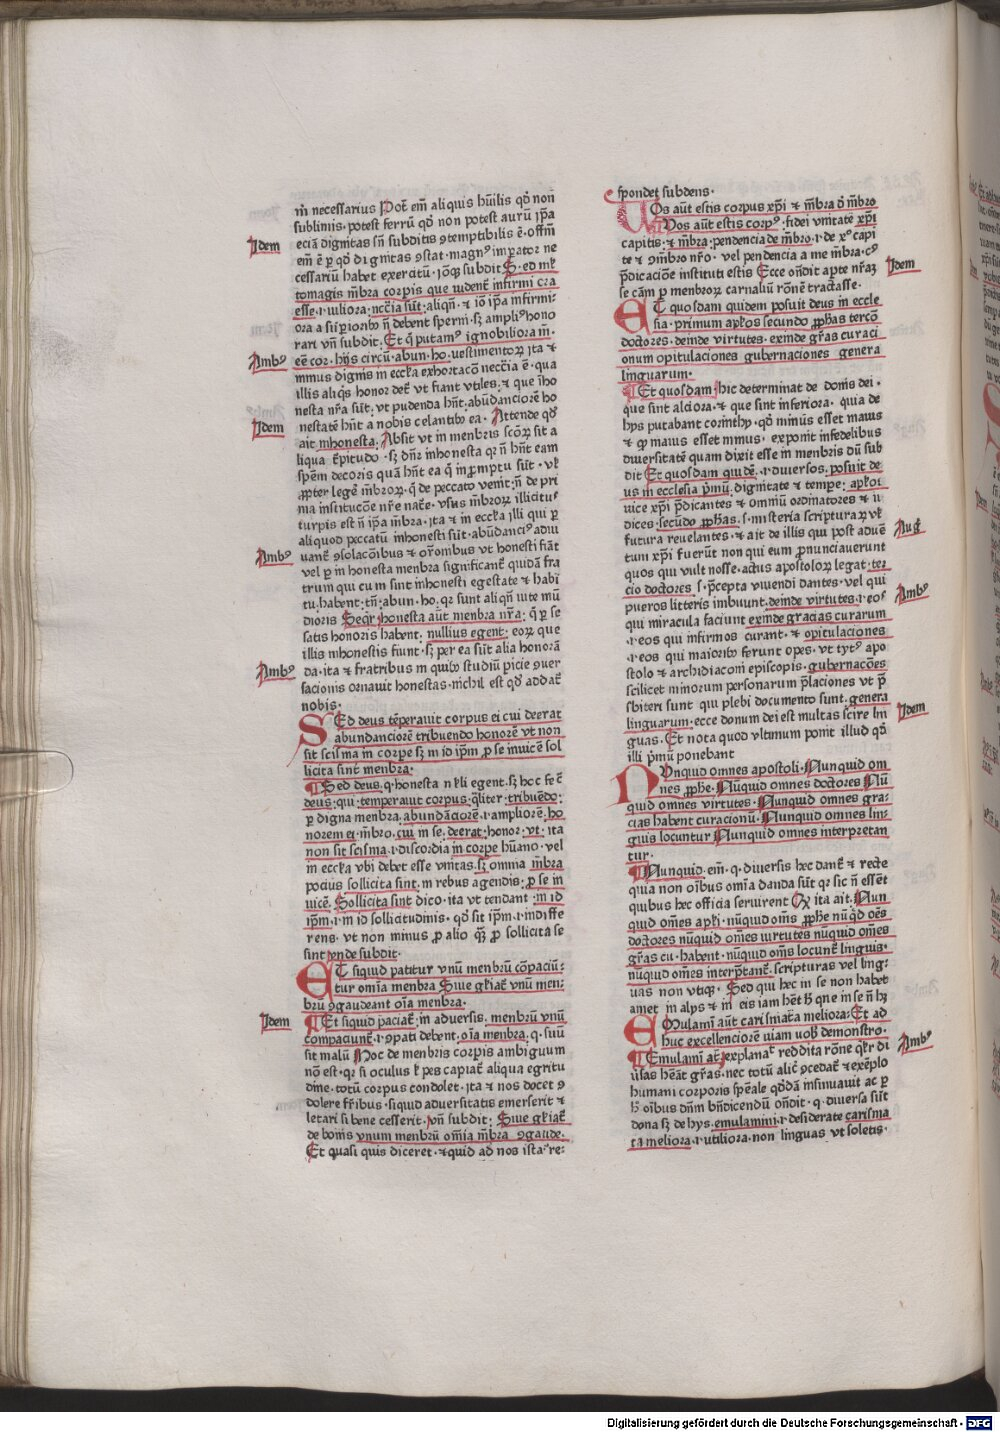 m̄ necessarius Pot̄ em̄ aliquis hūilis qd̄ non
sublimis. potest ferrū qd̄ non potest aurū ip̄a
Idem
eciā dignitas sn̄ subditis ꝯtemptibilis ē. offm̄
em̄ ē ꝑ qd̄ dignitas ꝯstat. magnꝰ imꝑator ne
cessariū habet exercitū. ioqꝫ subdit S. ed ml̄
tomagis mb̄ra corꝑis que uident̄ infirmi cra
esse. i utiliora. ncc̄ia sūt. aliqn̄. ⁊ iō ip̄a infirmi
ora a suꝑioribꝰ n̄ debent sperni. sꝫ ampliꝰ hono
rari vn̄ subdit. Et q̄ putamꝰ ignobiliora m̄.
Ambꝰ
eē cor. hijs circū. abun. ho. vestimentoꝝ ita ⁊
minus dignis in eccl̄ia exhortacō necc̄ia ē. qua
illis aliqͥs honor det̄ vt fiant vtiles. ⁊ que iho
nesta nr̄a sūt. vt pudenda hn̄t. abūdanciorē ho
Idem
nestatē hn̄t a nobis celantibꝰ ea. Attende qd̄
ait inhonesta. Absit vt in menbris scōꝝ sit a
liqua t̄pitudo. sꝫ dn̄r inhonesta qꝛ n̄ hn̄t eam
spēm decoris quā hn̄t ea q̄ in promptu sūt. vl̄
ꝓpter legē mb̄roꝝ. q̄ de peccato venit. n̄ de pri
ma institucōe nr̄e nat̄e. vsus mb̄roꝝ illicitus
turpis est n̄ ip̄a mb̄ra. ita ⁊ in eccl̄ia illi qui ꝑ
aliquod peccatū inhonesti sūt. abūdanciꝰ adiu
Ambꝰ
uant̄ ꝯsolacōibus ⁊ or̄onibus vt honesti fiāt
vel ꝑ in honesta menbra significant̄ quidā fra
trum qui cum sint inhonesti egestate ⁊ habi
tu. habent. tn̄. abun. ho. qꝛ sunt aliqn̄ uite mū
dioris Seqr̄. honesta aūt menbra nr̄a. q̄ ꝑ se
satis honoris habent. nullius egent. eoꝝ que
illis inhonestis fiunt. sꝫ per ea sūt alia honorā
Ambꝰ
da. ita ⁊ fratribus in quibꝰ studiū picie ꝯuer
sacionis ornauit honestas. nichil est qd̄ addat̄
nobis.
Sed deus tēperauit corpus ei cui deerat
abundanciorē tribuendo honorē vt non
sit scisma in corpe sꝫ in id ip̄m ꝓ se inuicē sol
licita sint menbra.
Sed deus. q. honesta nl̄li egent. sꝫ hoc fec̄
deus. qui. temperauit corpus. qͣliter. tribuēdo.
ꝑ digna menbra. abundāciorē. i ampliorē. ho
norem ei. mb̄ro. cui in se. deerat. honor. vt. ita
non sit scisma. i discordia in corpe hūano. vel
in eccl̄ia vbi debet esse vnitas. sꝫ omnia mb̄ra
pocius sollicita sint. in rebus agendis. ꝓ se in
uicē. Sollicita sint dico. ita vt tendant. in id
ip̄m. i in id sollicitudinis. qd̄ sit ip̄m. i indiffe
rens. vt non minus ꝓ alio qꝫ ꝓ sollicita se
sint ende subdit.
Et siquid patitur vnū menbrū cōpaciū-
tur omīa menbra Siue gl̄iat̄ vnū men-
brū ꝯgaudeant oīa menbra.
Idem
Et siquid paciat̄. in aduersis. menbrū vnū
compaciunt̄. i ꝯpati debent. oīa menbra. q. suū
sit malū Hoc de menbris corpis ambiguum
nō est. qꝛ si oculus l̄ pes capiat̄ aliqua egritu
dine. totū corpus condolet. ita ⁊ nos docet ꝯ
dolere fr̄ibus. siquid aduersitatis emerserit ⁊
letari si bene cesserit. vn̄ subdit. Siue gl̄iat̄
de bonis vnum menbrū omīa mb̄ra ꝯgaude.
Et quasi quis diceret. ⁊ quid ad nos istaꝰ re-
spondet subdens.
Uos aūt estis corpus xp̄i ⁊ mb̄ra d̄ mb̄ro
Vos aūt estis corpꝰ. fidei vnitate xp̄i
capitis. ⁊ mb̄ra. pendencia de mb̄ro. i de xͦ capi
te ⁊ ꝯmb̄ro nr̄o. vel pendencia a me mb̄ra. cꝰ
Idem
p̄dicacōne instituti estis Ecce on̄dit aꝑte nr̄aꝫ
se cām ꝑ menbroꝝ carnaliū rōnē tractasse.
Et quosdam quidem posuit deus in eccle
sia. primum ap̄los secundo ꝓphas tercō
doctores. deinde virtutes. exinde gr̄as curaci
onum opitulaciones gubernaciones genera
linguarum.
Et quosdam hic determinat de donis dei.
que sint alciora. ⁊ que sint inferiora. quia de
hijs putabant corinthij. qd̄ minus esset maius
⁊ qd̄ maius esset minus. exponit infedelibus
diuersitatē quam dixit esse in menbris dū sub
dit Et quosdam quidē. i diuersos. posuit de
us in ecclesia p̄mū. dignitate ⁊ tempe. ap̄los
uice xp̄i p̄dicantes ⁊ omniū ordinatores ⁊ iu
dices. secūdo ꝓphas. s. misteria scripturaꝝ vl̄
Auḡ
futura reuelantes. ⁊ ait de illis qui post aduē
tum xp̄i fuerūt non qui eum pronunciauerunt
quos qui vult nosse. actus apostoloꝝ legat. ter
cio doctores s. p̄cepta viuendi dantes. vel qui
Ambꝰ
pueros litteris imbuunt. deinde virtutes. i eos
qui miracula faciunt exinde gracias curarum
. i eos qui infirmos curant. ⁊ opitulaciones
. i eos qui maioribꝰ ferunt opes. vt tytꝰ apo
stolo ⁊ archidiaconi episcopis. gubernacōes
scilicet minorum personarum p̄laciones vt p̄
sbiteri sunt qui plebi documento sunt. genera
Idem
linguarum. ecce donum dei est multas scire lin
guas. Et nota quod vltimum ponit illud qd̄
illi p̄mū ponebant
Nunquid omnes apostoli. Nunquid om
nes ꝓphe. Nūquid omnes doctores Nū
quid omnes virtutes. Nunquid omnes gra-
cias habent curacionū. Nunquid omnes lin-
guis locuntur Nunquid omnes interpretan
tur.
Nunquid. em̄. q. diuersis hec dant̄ ⁊ recte
quia non oībus omīa danda sūt qꝛ sic n̄ essēt
quibus hec officia seruirent Qd̄ ita ait. Nun
quid om̄es ap̄li. nūquid om̄s ꝓphe nūqͥd oēs
doctores nūquid om̄es uirtutes nūquid om̄es
gr̄as cu. habent. nūquid om̄s locunt̄ linguis.
nūquid om̄es interp̄tant̄. scripturas vel ling-
uas non vtiqꝫ. Sed qui hec in se non habet
amet in alijs ⁊ in eis iam hēt h̄ que in se n̄ hꝫ
Emulamī aūt carismata meliora. Et ad
huc excellenciorē uiam vob̄ demonstro.
Ambꝰ
Emulamī at̄. explanat̄ reddita rōne qr̄ di
uīsas hēāt gr̄as. nec totū alicͥ ꝯcedat̄ ⁊ exēplo
humani corporis sp̄eale qddā insinuauit ac ꝑ
h̄ oībus dn̄m bn̄dicendū on̄dit. q. diuersa sūt
dona sꝫ de hijs. emulamini. i desiderate carisma
ta meliora. i utiliora. non linguas vt soletis.
Digitalisierung gefördert durch die Deutsche Forschungsgemeinschaft - DFG